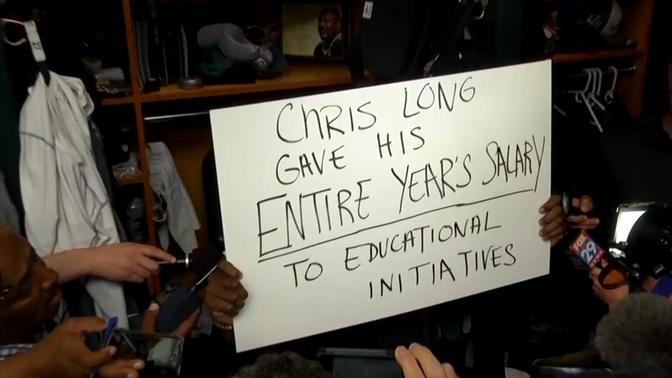 CHRIS LONG
GAVE HIS
ENTIRE YEAR'S SALARY
TO EDUCATIONAL
INITIATIVES
FOX
29